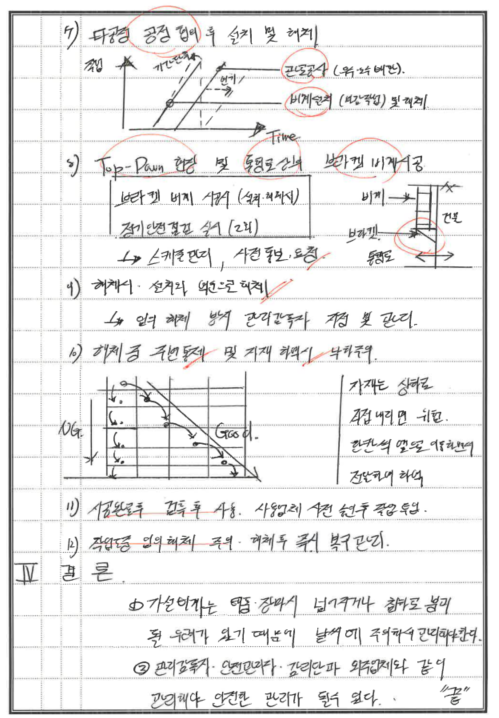 7) 타공정 공정 협의 후 설치 및 해체
작업
기간단축
관로공사 (우·오수 배관).
연기
비계설치 (야간작업) 및 해체
Time
8) Top-Down 현장 및 통행로 상의 브라켓 비계시공
브라켓 비계 시공시 (설치·해체시)
정기안전점검 실시 (2회)
↳ 스케줄관리, 사전통보·요청
비계
건물
브라켓
통행로
9) 해체시·설치와 역순으로 해체
↳ 임의 해체 방지 관리감독자 지정 및 관리.
10) 해체 중 주변통제 및 자재 하역시 낙하주의.
NG.
Good.
가재는 상하로
직접 내리면 위험.
한칸씩 옆으로 이동하면서
전달하여 하역
11) 시공완료후 검측 후 사용. 사용업체 사전 승인후 작업 투입.
12) 작업도중 임의해체 주의·해체후 즉시 복구관리.
Ⅳ 결론.
① 가설비계는 태풍·장마시 넘어지거나 침하로 붕괴
될 우려가 있기 때문에 날씨에 주의하여 관리해야한다.
② 관리감독자·안전관리자·감리단과 외주업체와 같이
관리해야 안전한 관리가 될수 있다.. "끝"